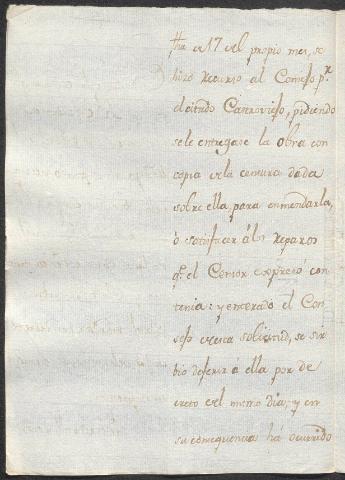 fha a 17 del propio mes, se
hizo recurso al Consejo p.r
el citado Canovieso, pidiendo
se le entregase la obra con
copia de la censura dada
sobre ella para enmendarla,
ò satisfacer á los reparos
q.e el Censor expresó con
tenia: y enterado el Con
sejo de esta solicitud, se sir
bió deferir á ella por de
creto del mismo dia; y en
su consequencia há ocurrido